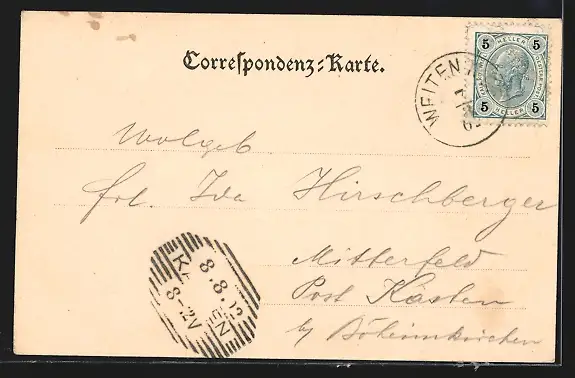 Correspondenz-Karte.
5 HELLER 5
5 HELLER 5
WEITEN
Wolgeb
frl. Ida Hirschberger
Mitterfeld
Post Kasten
by Böheimkirchen
8.8.
8-12V